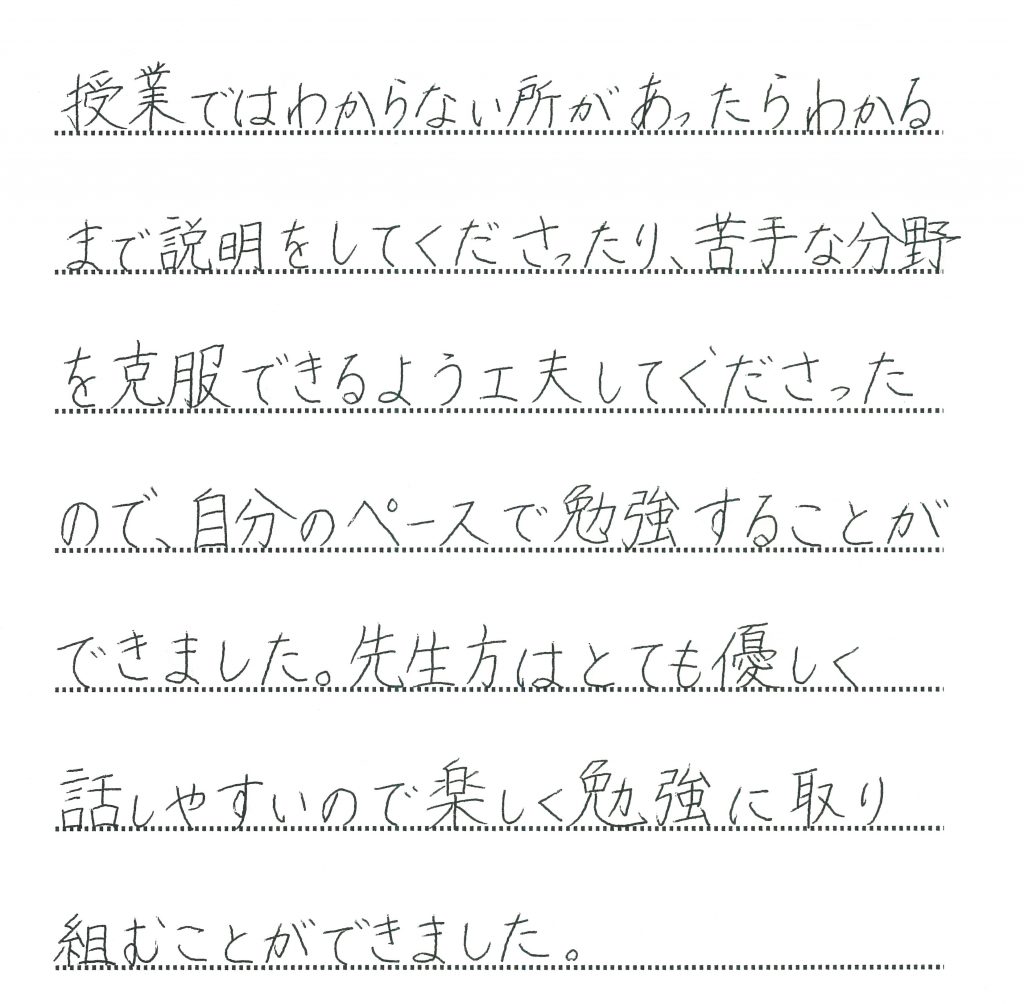 授業ではわからない所があったらわかる
まで説明をしてくださったり、苦手な分野
を克服できるよう工夫してくださった
ので、自分のペースで勉強することが
できました。先生方はとても優しく
話しやすいので楽しく勉強に取り
組むことができました。